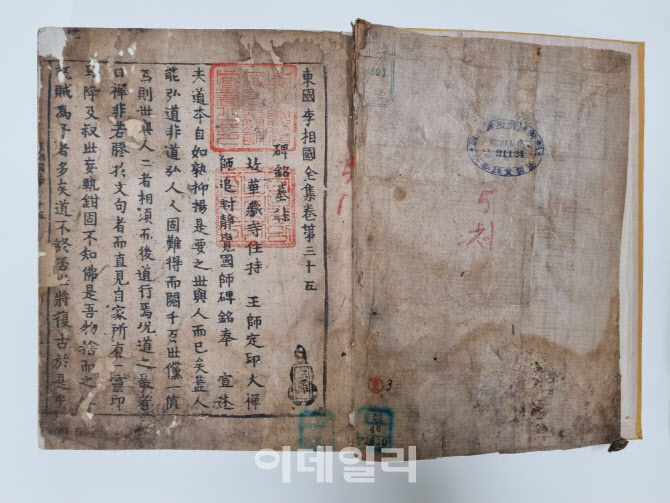 東國李相國全集卷第三十五
碑銘墓誌
故華藏寺住持 王師定印大禪
師追封靜覺國師碑銘奉 宣述
夫道本自如孰抑揚是要之世與人而已矣蓋人
能弘道非道弘人人固難得而閱千百世儻一値
焉則世與人二者相須而後道行焉況道之最者
曰禪非若膠於文句者而直見自家所有一靈印
降及叔世妄執鉗固不知佛是吾物捨而之
賊爲子者多矣道不終否必將復古於是
21124
5
치
3
이데일리